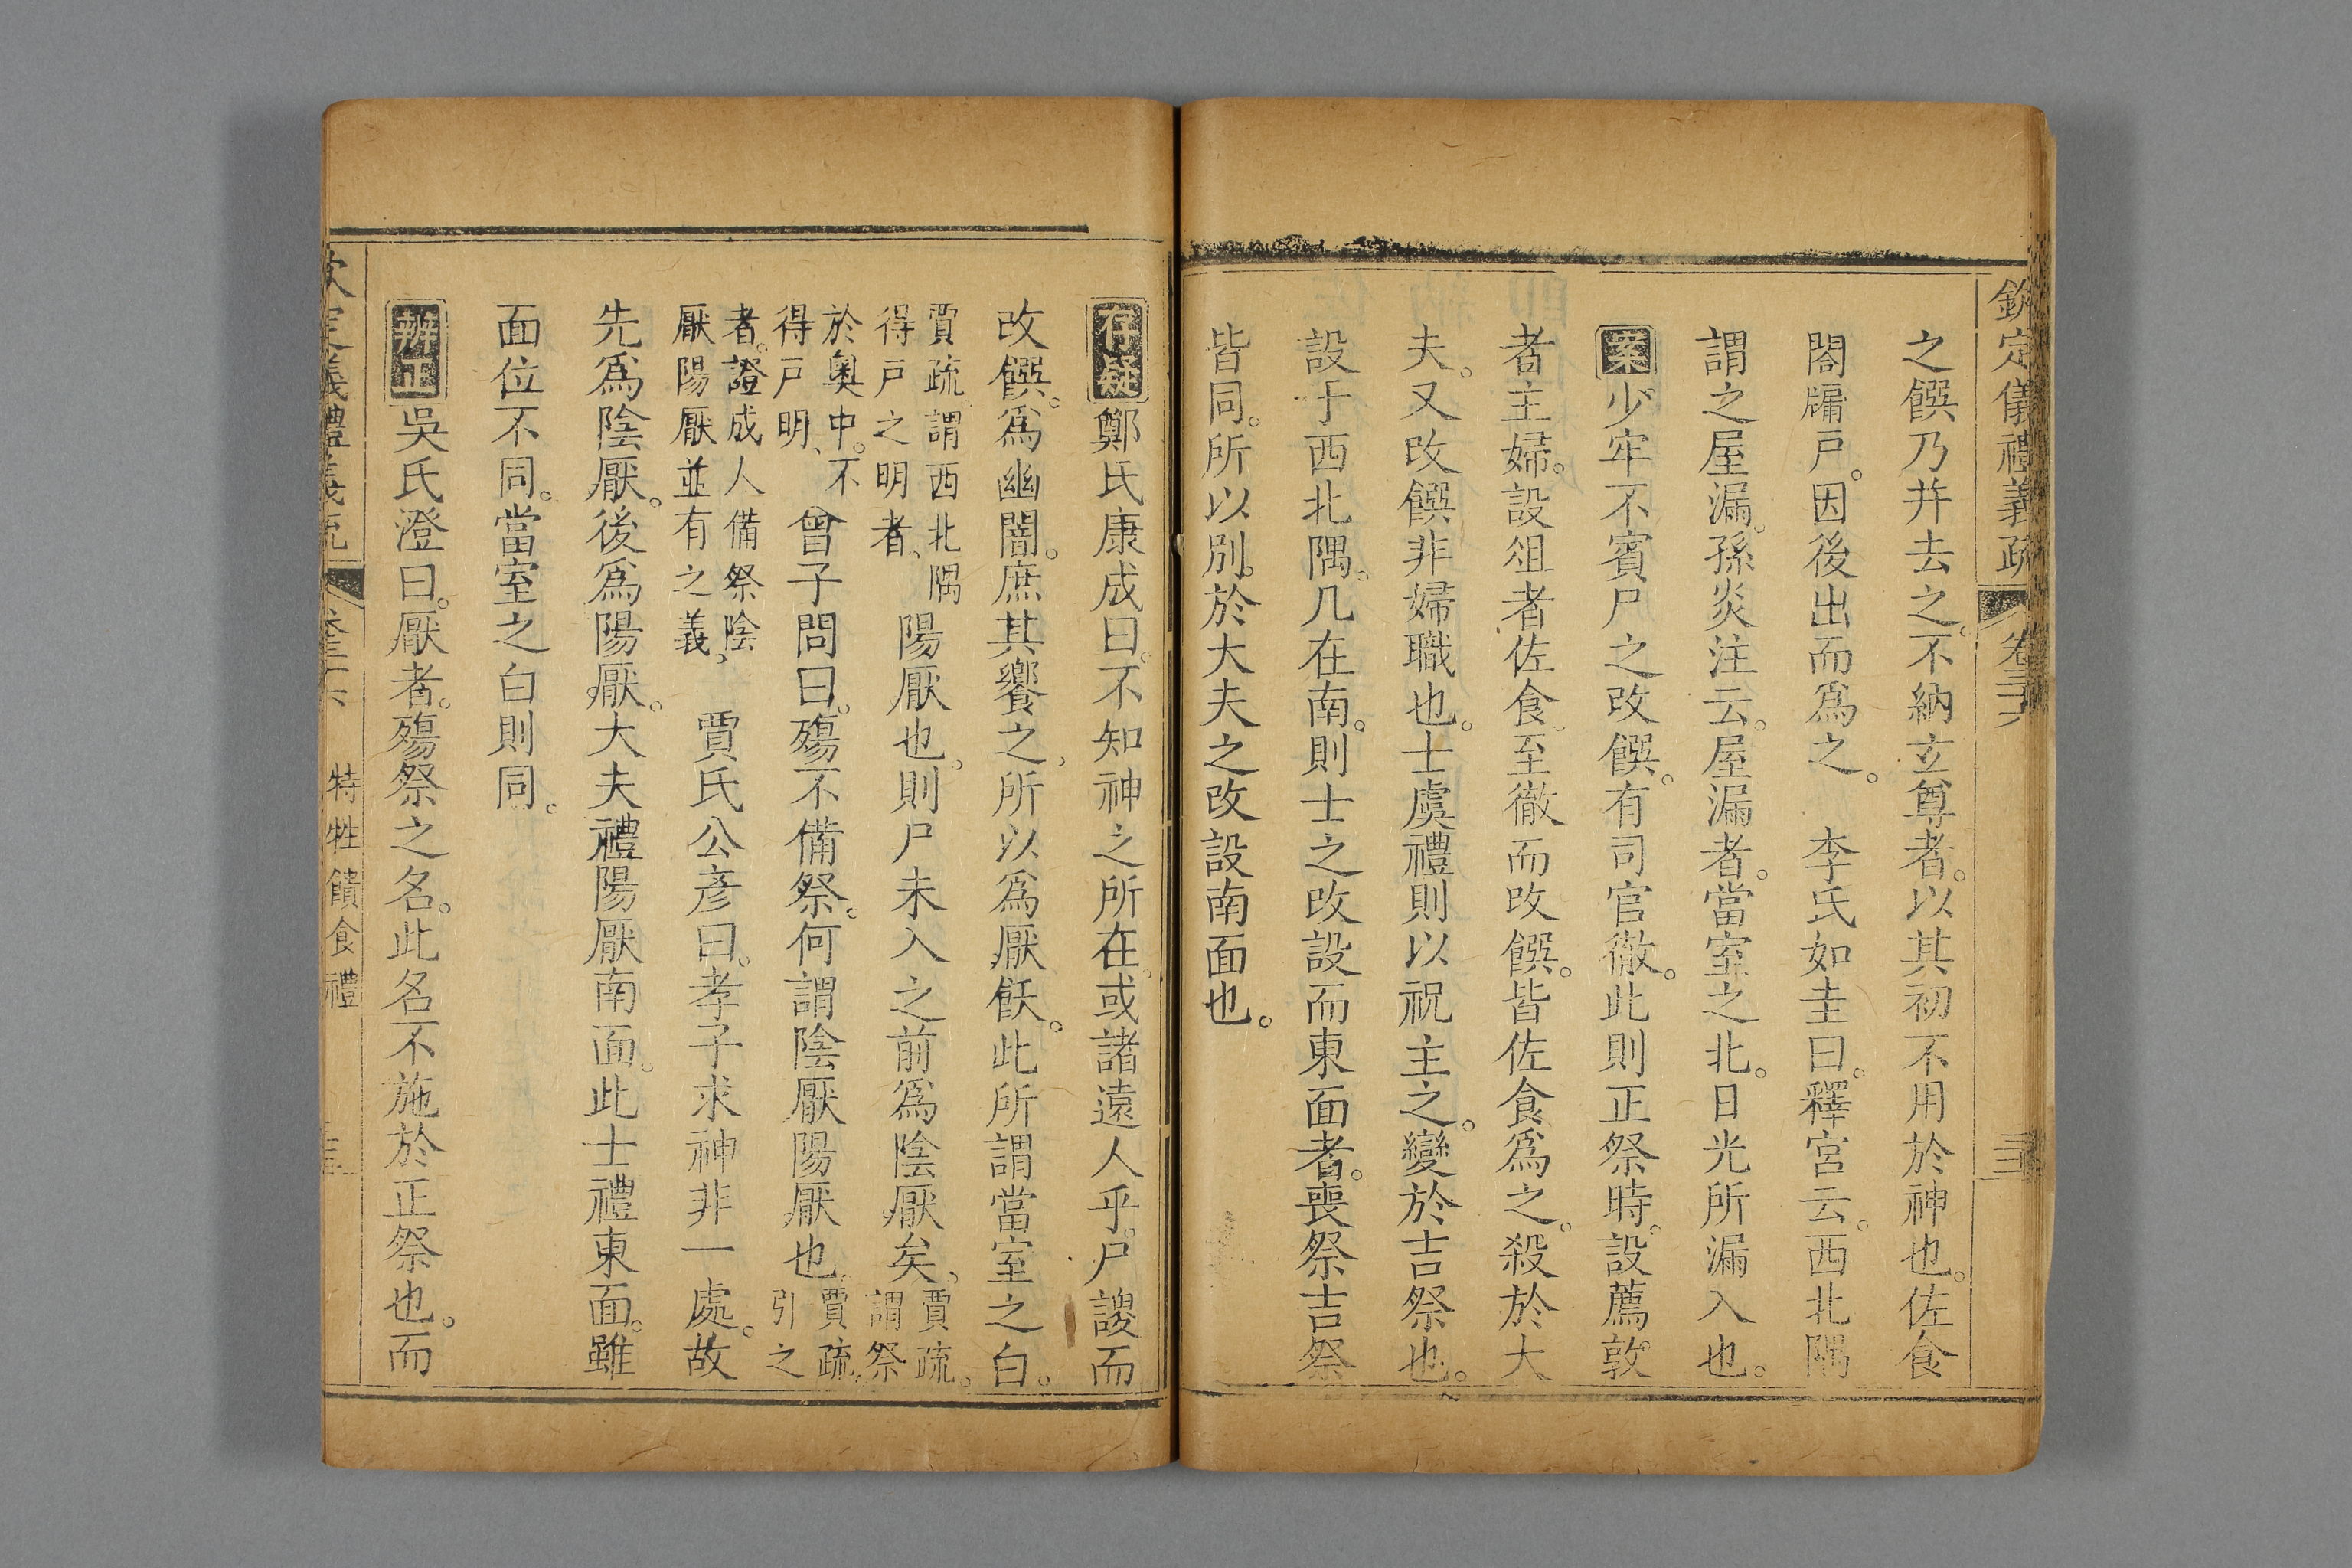 欽定儀禮義疏 卷三十六
之饌乃幷去之。不納玄尊者。以其初不用於神也。佐食
閤牖戶。因後出而爲之。 李氏如圭曰。釋宮云。西北隅
謂之屋漏。孫炎注云。屋漏者。當室之北。日光所漏入也。
案少牢不賓尸之改饌。有司官徹。此則正祭時。設薦敦
者主婦。設俎者佐食。至徹而改饌。皆佐食爲之。殺於大
夫。又改饌非婦職也。士虞禮則以祝主之。變於吉祭也。
設于西北隅。几在南。則士之改設而東面者。喪祭吉祭
皆同。所以別於大夫之改設南面也。
存疑鄭氏康成曰。不知神之所在。或諸遠人乎。尸謖而
改饌。爲幽闇。庶其饗之。所以爲厭飫。此所謂當室之白。
賈疏。謂西北隅
得戶之明者。
陽厭也。則尸未入之前爲陰厭矣。
賈疏。
謂祭
於奧中。不
得戶明。
曾子問曰。殤不備祭。何謂陰厭陽厭也。
賈疏。
引之
者。證成人備祭陰
厭陽厭並有之義。
賈氏公彥曰。孝子求神非一處。故
先爲陰厭。後爲陽厭。大夫禮陽厭南面。此士禮東面。雖
面位不同。當室之白則同。
辨正吳氏澄曰。厭者。殤祭之名。此名不施於正祭也。而
特牲饋食禮